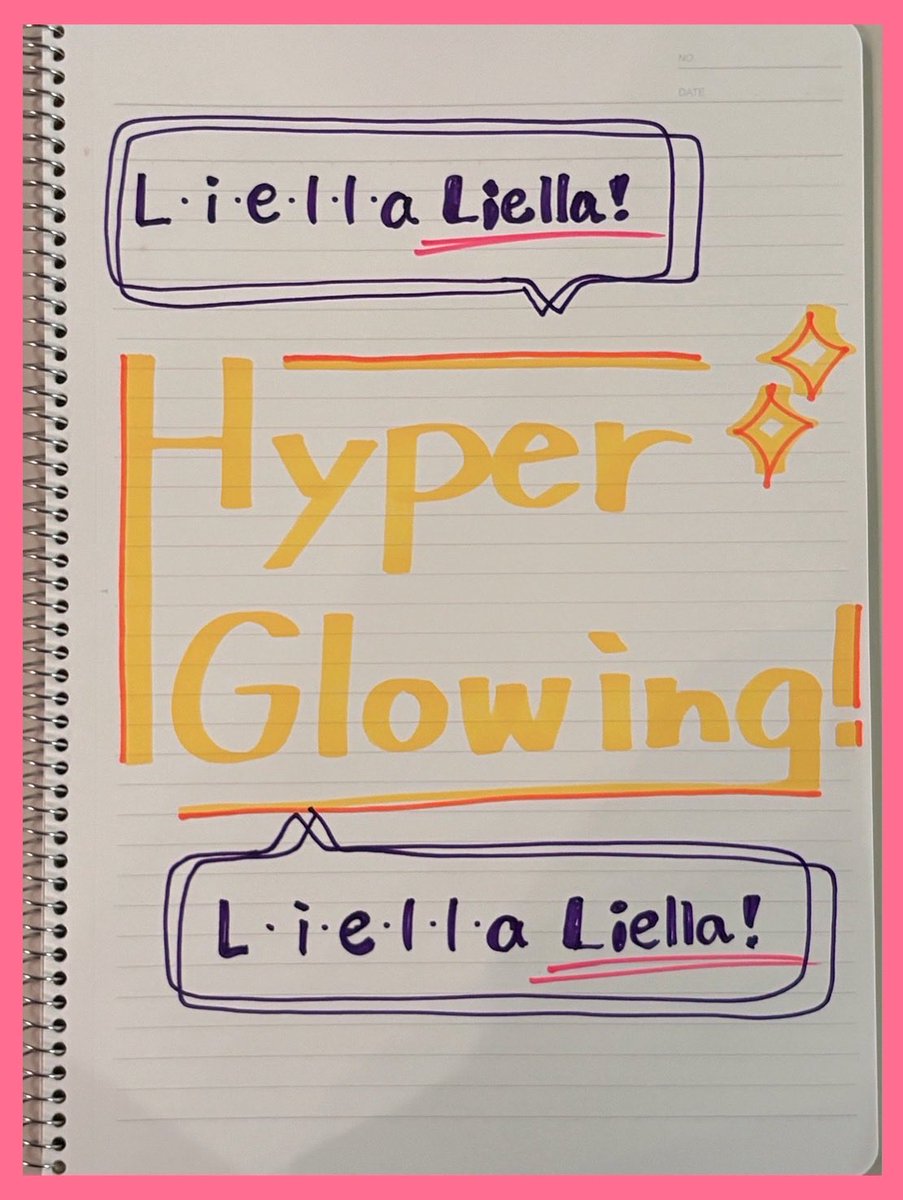 NO.
DATE
L·i·e·l·l·a Liella!
Hyper
Glowing!
L·i·e·l·l·a Liella!